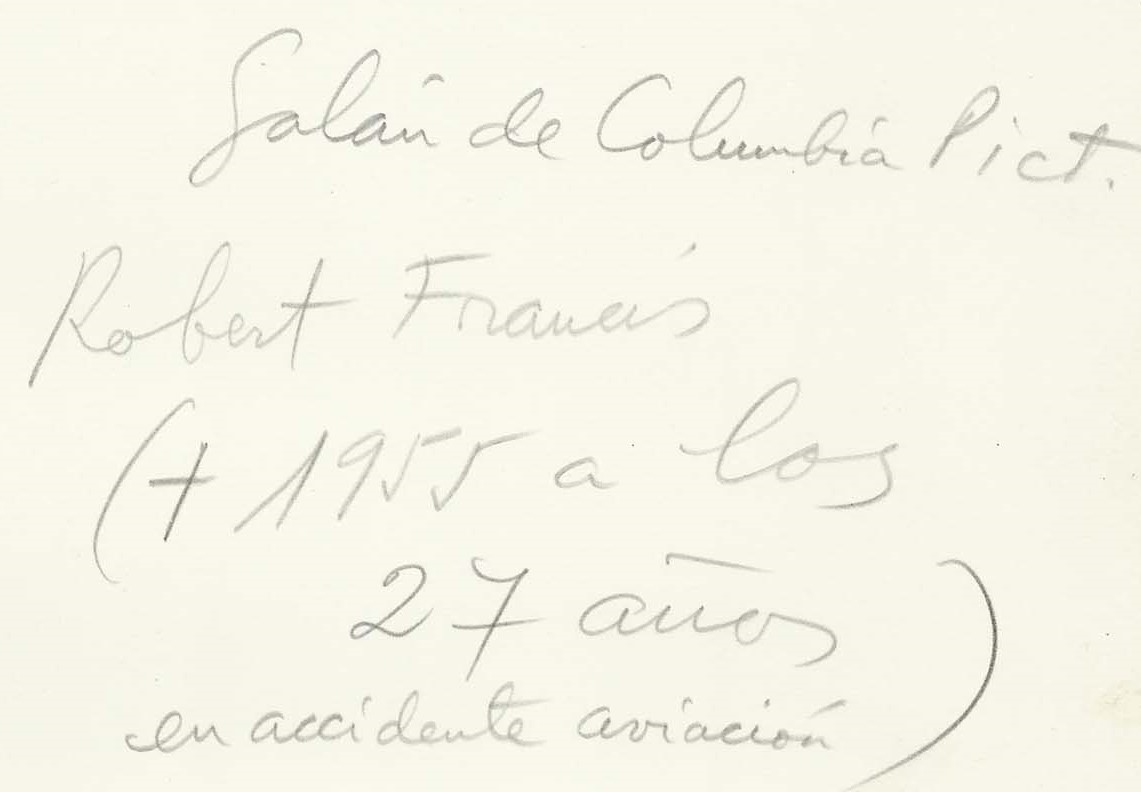 Galán de Columbia Pict.
Robert Francis
(+ 1955 a los
27 años
en accidente aviación)